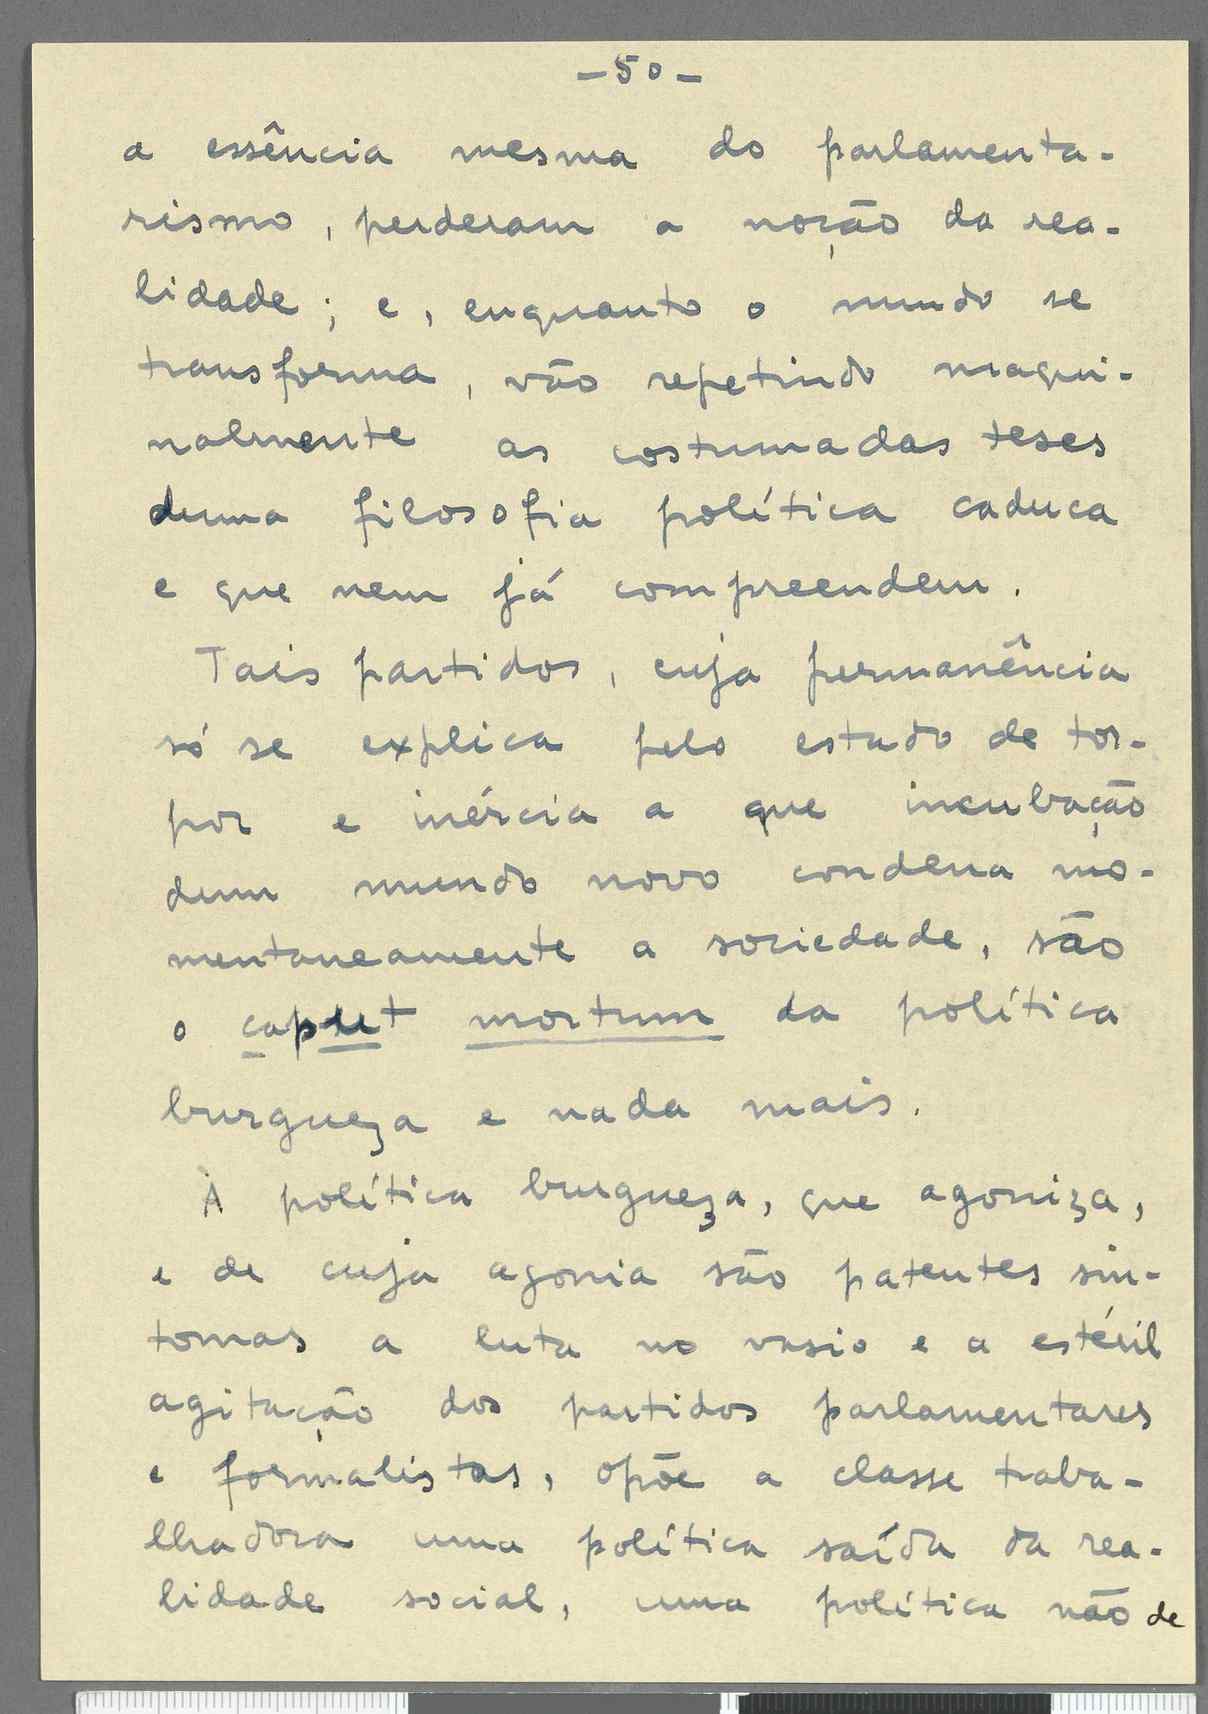 -50-
a essência mesma do parlamenta-
rismo, perderam a noção da rea-
lidade; e, enquanto o mundo se
transforma, vão repetindo maqui-
nalmente as costumadas teses
duma filosofia política caduca
e que nem já compreendem.
Tais partidos, cuja permanência
só se explica pelo estado de tor-
por e inércia a que incubação
dum mundo novo condena mo-
mentaneamente a sociedade, são
o caput mortum da política
burgueza e nada mais.
À política burgueza, que agoniza,
e de cuja agonia são patentes sin-
tomas a luta no vasio e a estéril
agitação dos partidos parlamentares
e formalistas, opõe a classe traba-
lhadora uma política saída da rea-
lidade social, uma política não de